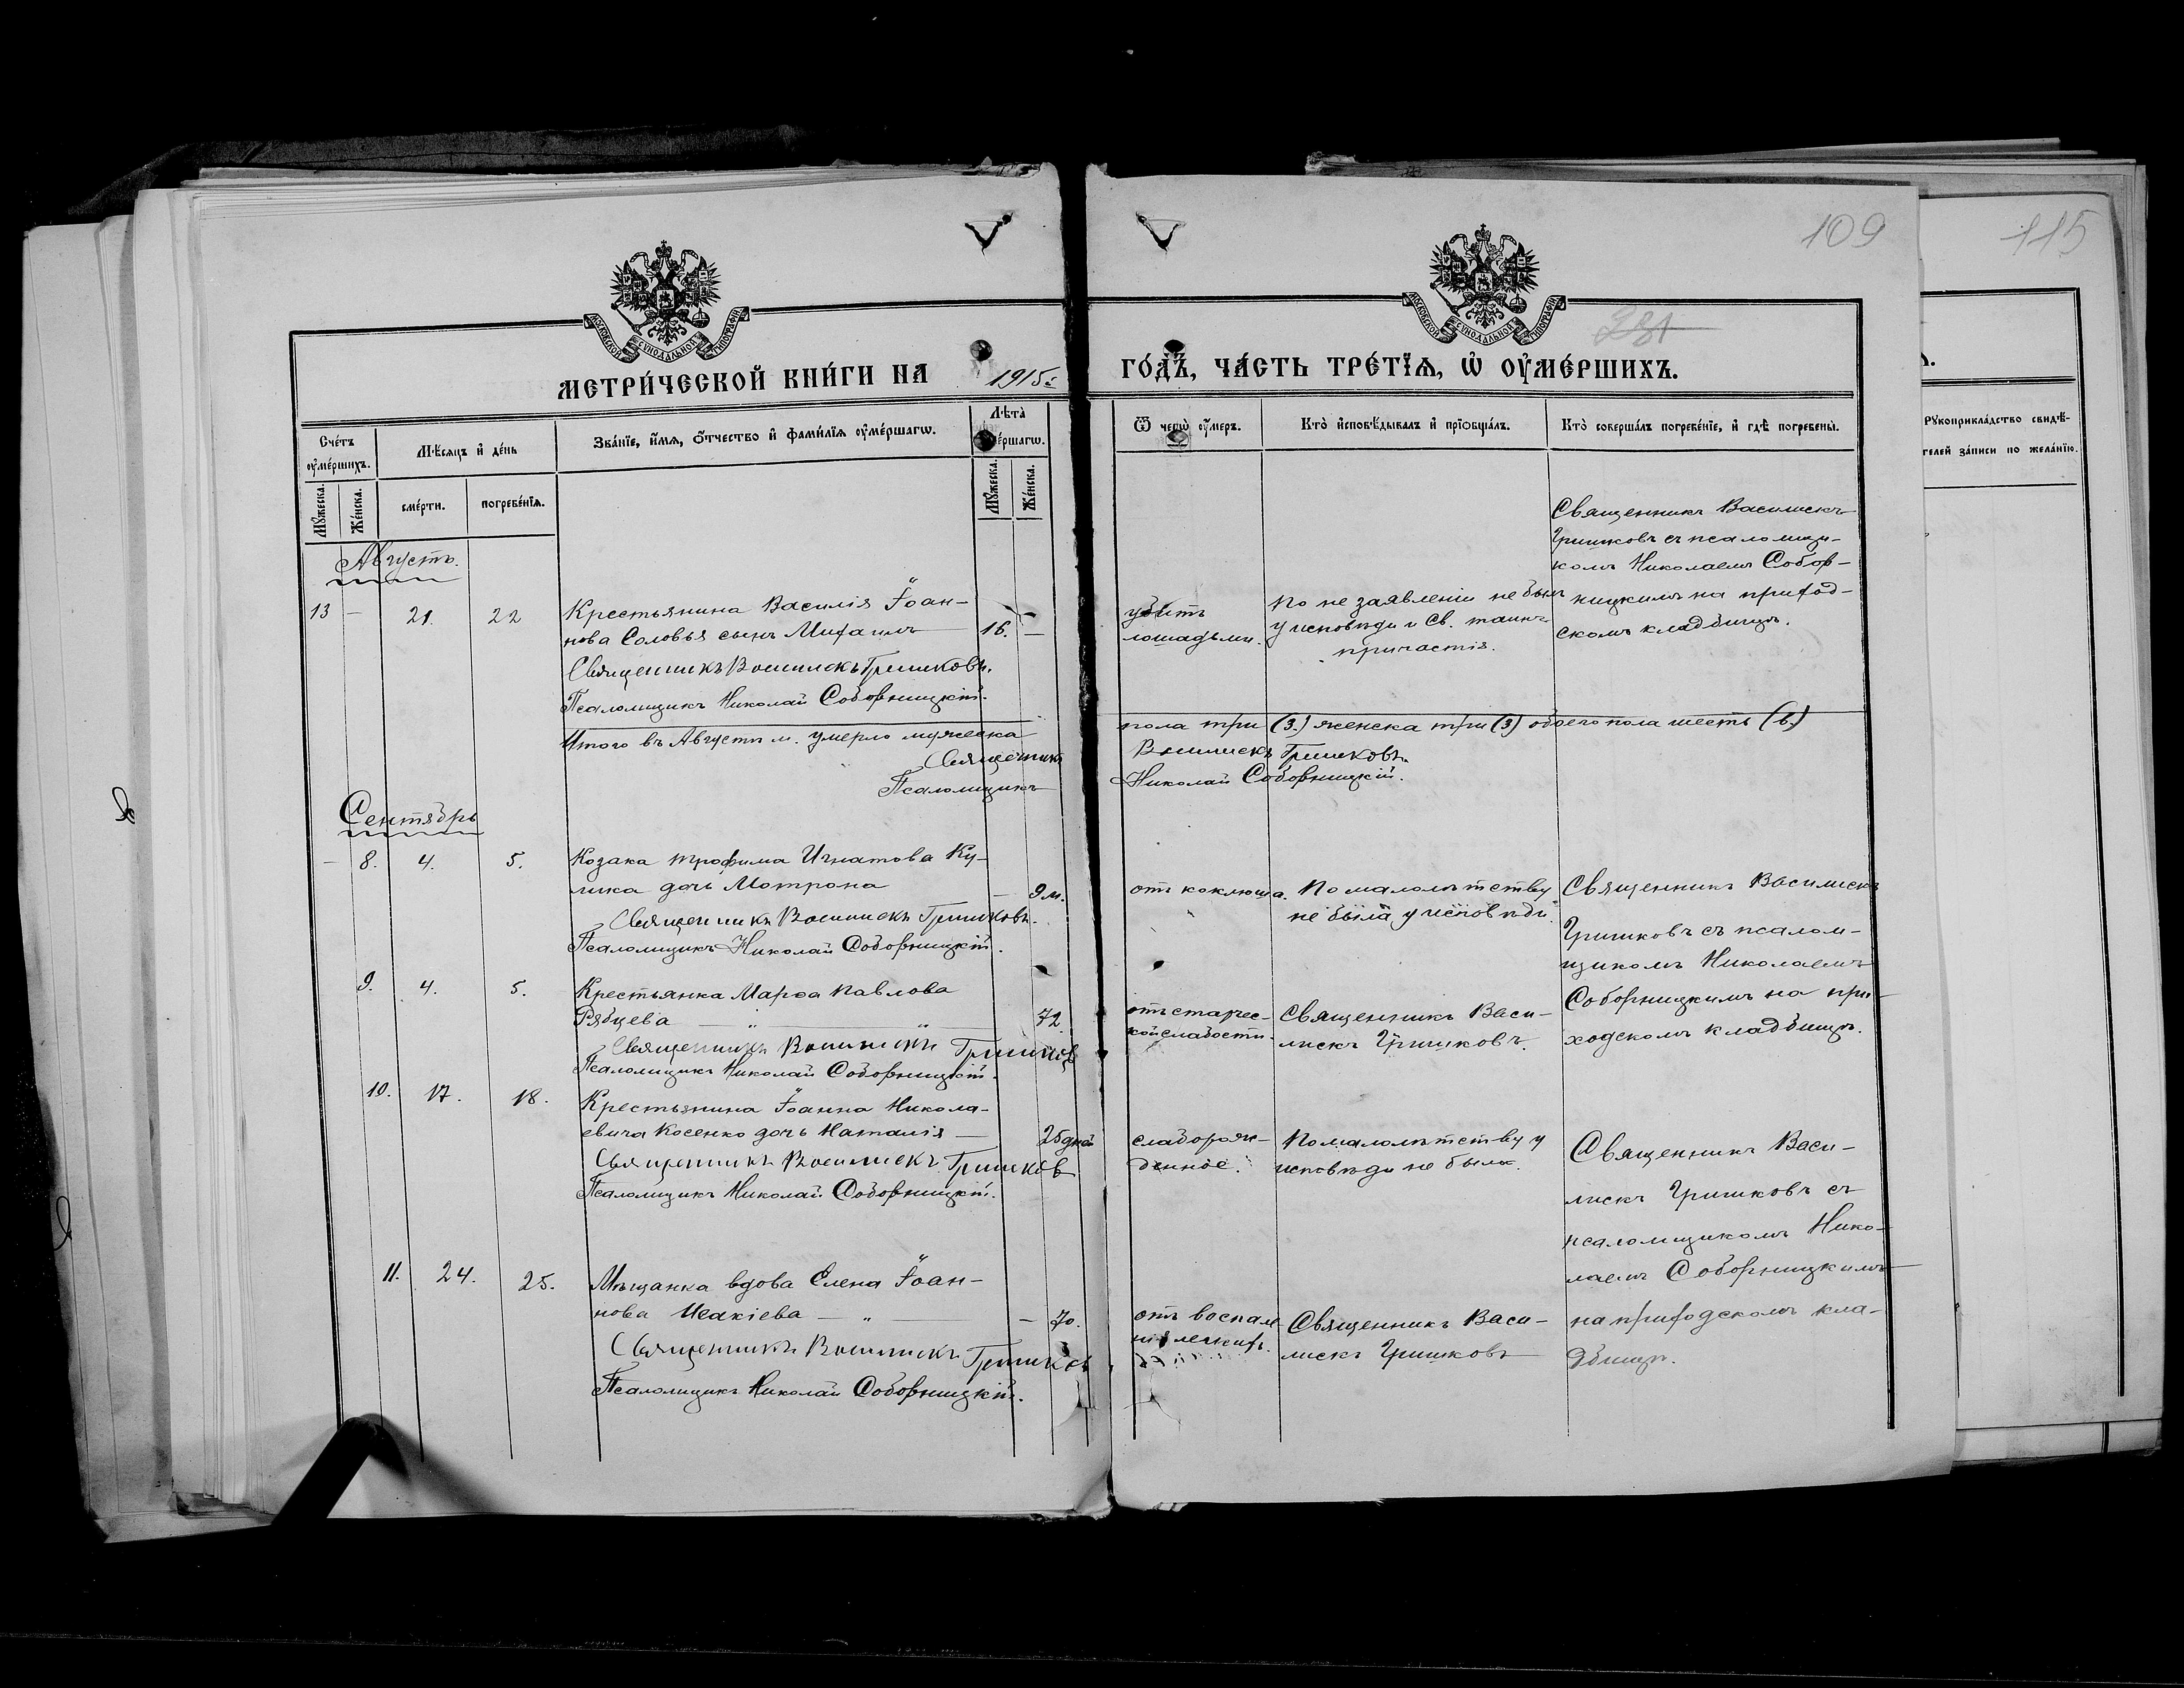 109
115
381
МОСКОВСКОЙ СѴНОДАЛЬНОЙ ТИПОГРАФІИ
МОСКОВСКОЙ СѴНОДАЛЬНОЙ ТИПОГРАФІИ
МЕТРИ́ЧЕСКОЙ КНИ́ГИ НА 1915 ГО́ДЪ, ЧА́СТЬ ТРЕ́ТЇѦ, Ѡ҆ ОУ҆МЕ́РШИХЪ.
Сче́тъ оумéршихъ.
Мѣ́сѧцъ и҆ де́нь
Зва́нїе, и҆́мѧ, ѻ҆́тчество и҆ фами́лїѧ оу҆ме́ршагѡ.
Лѣ́та
ме́ршагѡ.
Ѿ чегѡ̀ оу҆́меръ.
Кто̀ и҆сповѣ́дывалъ и҆ прїѡбща́лъ.
Кто̀ соверша́лъ погребе́нїе, и҆ гдѣ̀ погребены̀.
Рꙋкоприкла́дство свидѣ́-
телей за́писи по жела́нїю.
Мꙋ́жеска.
Же́нска.
сме́рти.
погребе́нїѧ.
Мꙋ́жеска.
Же́нска.
Августъ.
13 — 21. 22
Крестьянина Василія Іоан-
нова Соловья сынъ Михаилъ 16. —
Священникъ Василискъ Гришковъ.
Псаломщикъ Николай Соборницкій.
убитъ
лошадьми.
По не заявленію не былъ
у исповѣди и Св. таинъ
причастія.
Священникъ Василискъ
Гришковъ съ псаломщи-
комъ Николаемъ Собор-
ницкимъ на приход-
скомъ кладбищѣ.
Итого въ Августѣ м. умерло мужеска
пола три (3.) женска три (3) обоего пола шесть (6.)
Священникъ Василискъ Гришковъ.
Псаломщикъ Николай Соборницкій.
Сентябрь
— 8. 4. 5.
Козака Трофима Игнатова Ку-
лика дочь Мотрона — 9 м.
Священникъ Василискъ Гришковъ.
Псаломщикъ Николай Соборницкій.
отъ коклюша.
По малолѣтству
не была у исповѣди.
Священникъ Василискъ
Гришковъ съ псалом-
щикомъ Николаемъ
Соборницкимъ на при-
ходскомъ кладбищѣ.
9. 4. 5.
Крестьянка Марѳа Павлова
Рябцева — „ „ — 72.
Священникъ Василискъ Гришков
Псаломщикъ Николай Соборницкій.
отъ старчес-
кой слабости.
Священникъ Васи-
лискъ Гришковъ.
10. 17. 18.
Крестьянина Іоанна Никола-
евича Косенко дочь Наталія — 25 дней
Священникъ Василискъ Гришков
Псаломщикъ Николай Соборницкій.
слаборож-
денное.
По малолѣтству у
исповѣди не была.
Священникъ Васи-
лискъ Гришковъ съ
псаломщикомъ Нико-
лаемъ Соборницкимъ
на приходскомъ кла-
дбищѣ.
11. 24. 25.
Мѣщанка вдова Елена Іоан-
нова Исакіева — „ — 70.
Священникъ Василискъ Гришков
Псаломщикъ Николай Соборницкій.
отъ воспале
нія легкихъ.
Священникъ Васи-
лискъ Гришковъ